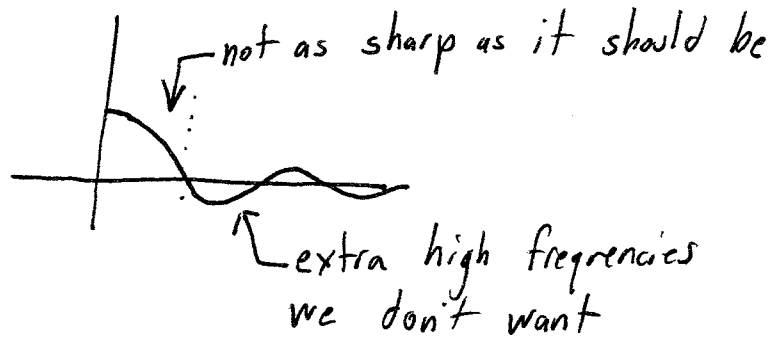 not as sharp as it should be
extra high freqrencies
we don't want